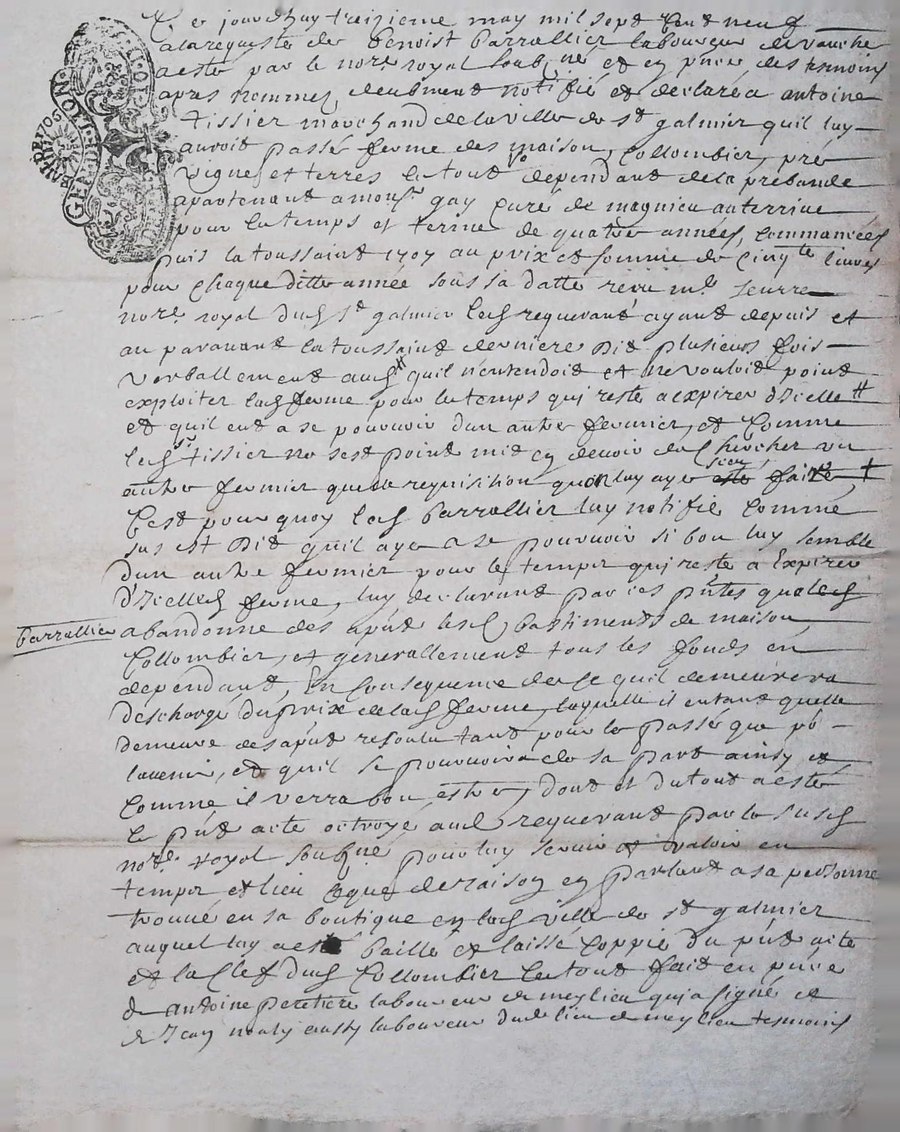 Ce jourdhuy treizieme may mil sept cent neuf
a la requeste de Benoist barrallier laboureur de
a esté par le nore royal soubne et en pnce des tesmoins
apres nommez, deubment notifié et declaré a antoine
tissier marchand de la ville de st galmier quil luy
auroit passé ferme des maison, Collombier, pré
vigne et terres le tout dependant de la prebande
apartenant a monsr gay curé de magnieu auterrine
pour le temps et terme de quatre années, commancées
puis la toussaint 1707 au prix et somme de cinqte livres
pour chaque ditte année sous sa datte receu me
nore royal dud st galmier led requerant ayant depuis et
au paravant la toussaint derniere dit plusieurs fois
verballement aud # quil n'entendoit et ne vouloit point
exploiter lad ferme pour le temps qui reste a expirer d'Icelle #
et quil eut a se pourvoir d'un autre fermier, et comme
led sr tissier ne s'est point mis en devoir de chercher un
autre fermier quelle requisition quon luy aye sceu faire, +
C'est pourquoy led barrallier luy notifie comme
sus est dit qu'il aye a se pourvoir si bon luy semble
d'un autre fermier pour le temps qui reste a Expirer
d'Icelle ferme, luy declarant par ces pntes que led
barrallier abandonne des a pnt lesd bastiments de maison
Collombier, et generallement tous les fonds en
dependant, En consequence de ce quil demeurera
deschargé du prix de lad ferme, laquelle il entant quelle
demeure des a pnt resoulu tant pour le passé que pr
lavenir, et quil se pourvoira de sa part ainsy et
comme il verra bon estre, dont et du tout a esté
le pnt acte octroyé aud requerant par le susd
nore royal soubne pour luy servir et valoir en
temps et lieu ce que de raison en parlant a sa personne
trouvé en sa boutique en lad ville de st galmier
auquel luy a esté baillé et laissé coppie du pnt acte
et la clef dud Collombier le tout fait en pnce
de antoine peretiere laboureur de meylieu qui a signé et
de Jean aussy laboureur dud lieu de meylieu tesmoins
GEN. DE LION